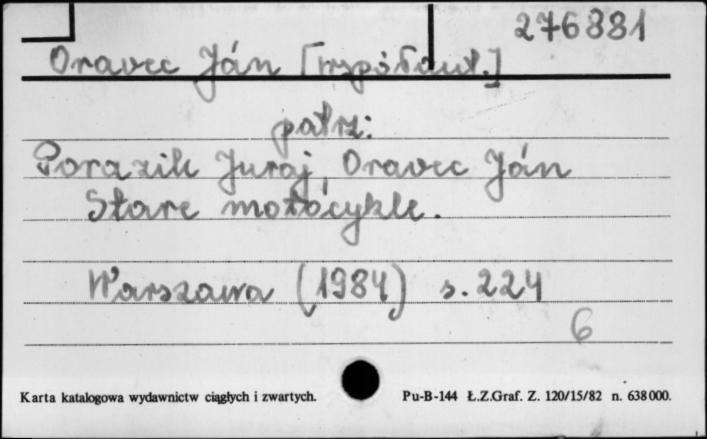 276881
Oravec Ján [współaut.]
patrz:
Porazik Juraj, Oravec Ján
Stare motocykle.
Warszawa (1984) s. 224
6
Karta katalogowa wydawnictw ciągłych i zwartych.
Pu-B-144 Ł.Z.Graf. Z. 120/15/82 n. 638000.